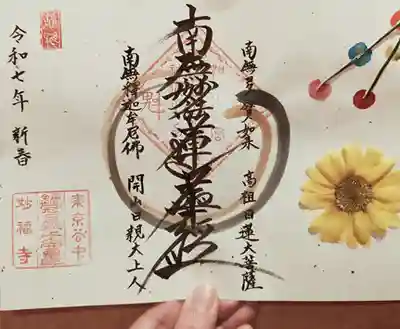 南無多寶如来 高祖日蓮大菩薩
南無妙法蓮華経
南無釋迦牟尼佛 開山日親大上人
令和七年 新春
東京谷中
妙福寺